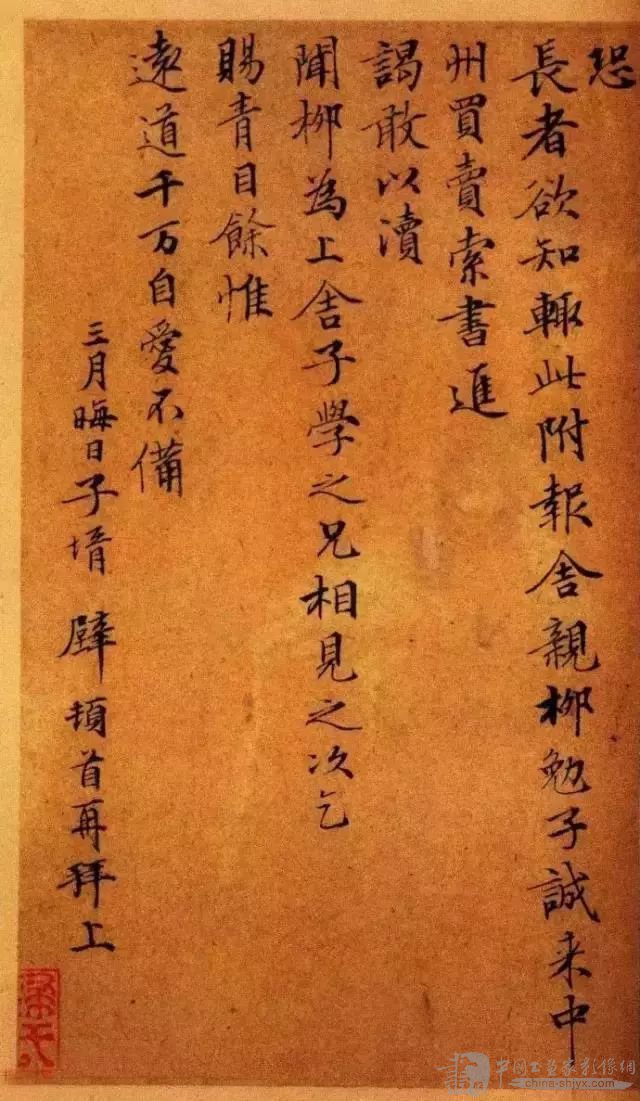 恐
長者欲知輙此附報舍親柳勉子誠来中
州買賣索書進
謁敢以瀆
聞柳為上舍子學之兄相見之次乞
賜青目餘惟
遠道千万自愛不備
三月晦日子壻 璧 頓首再拜上
中國書畫家影像網
china-shjyx.com